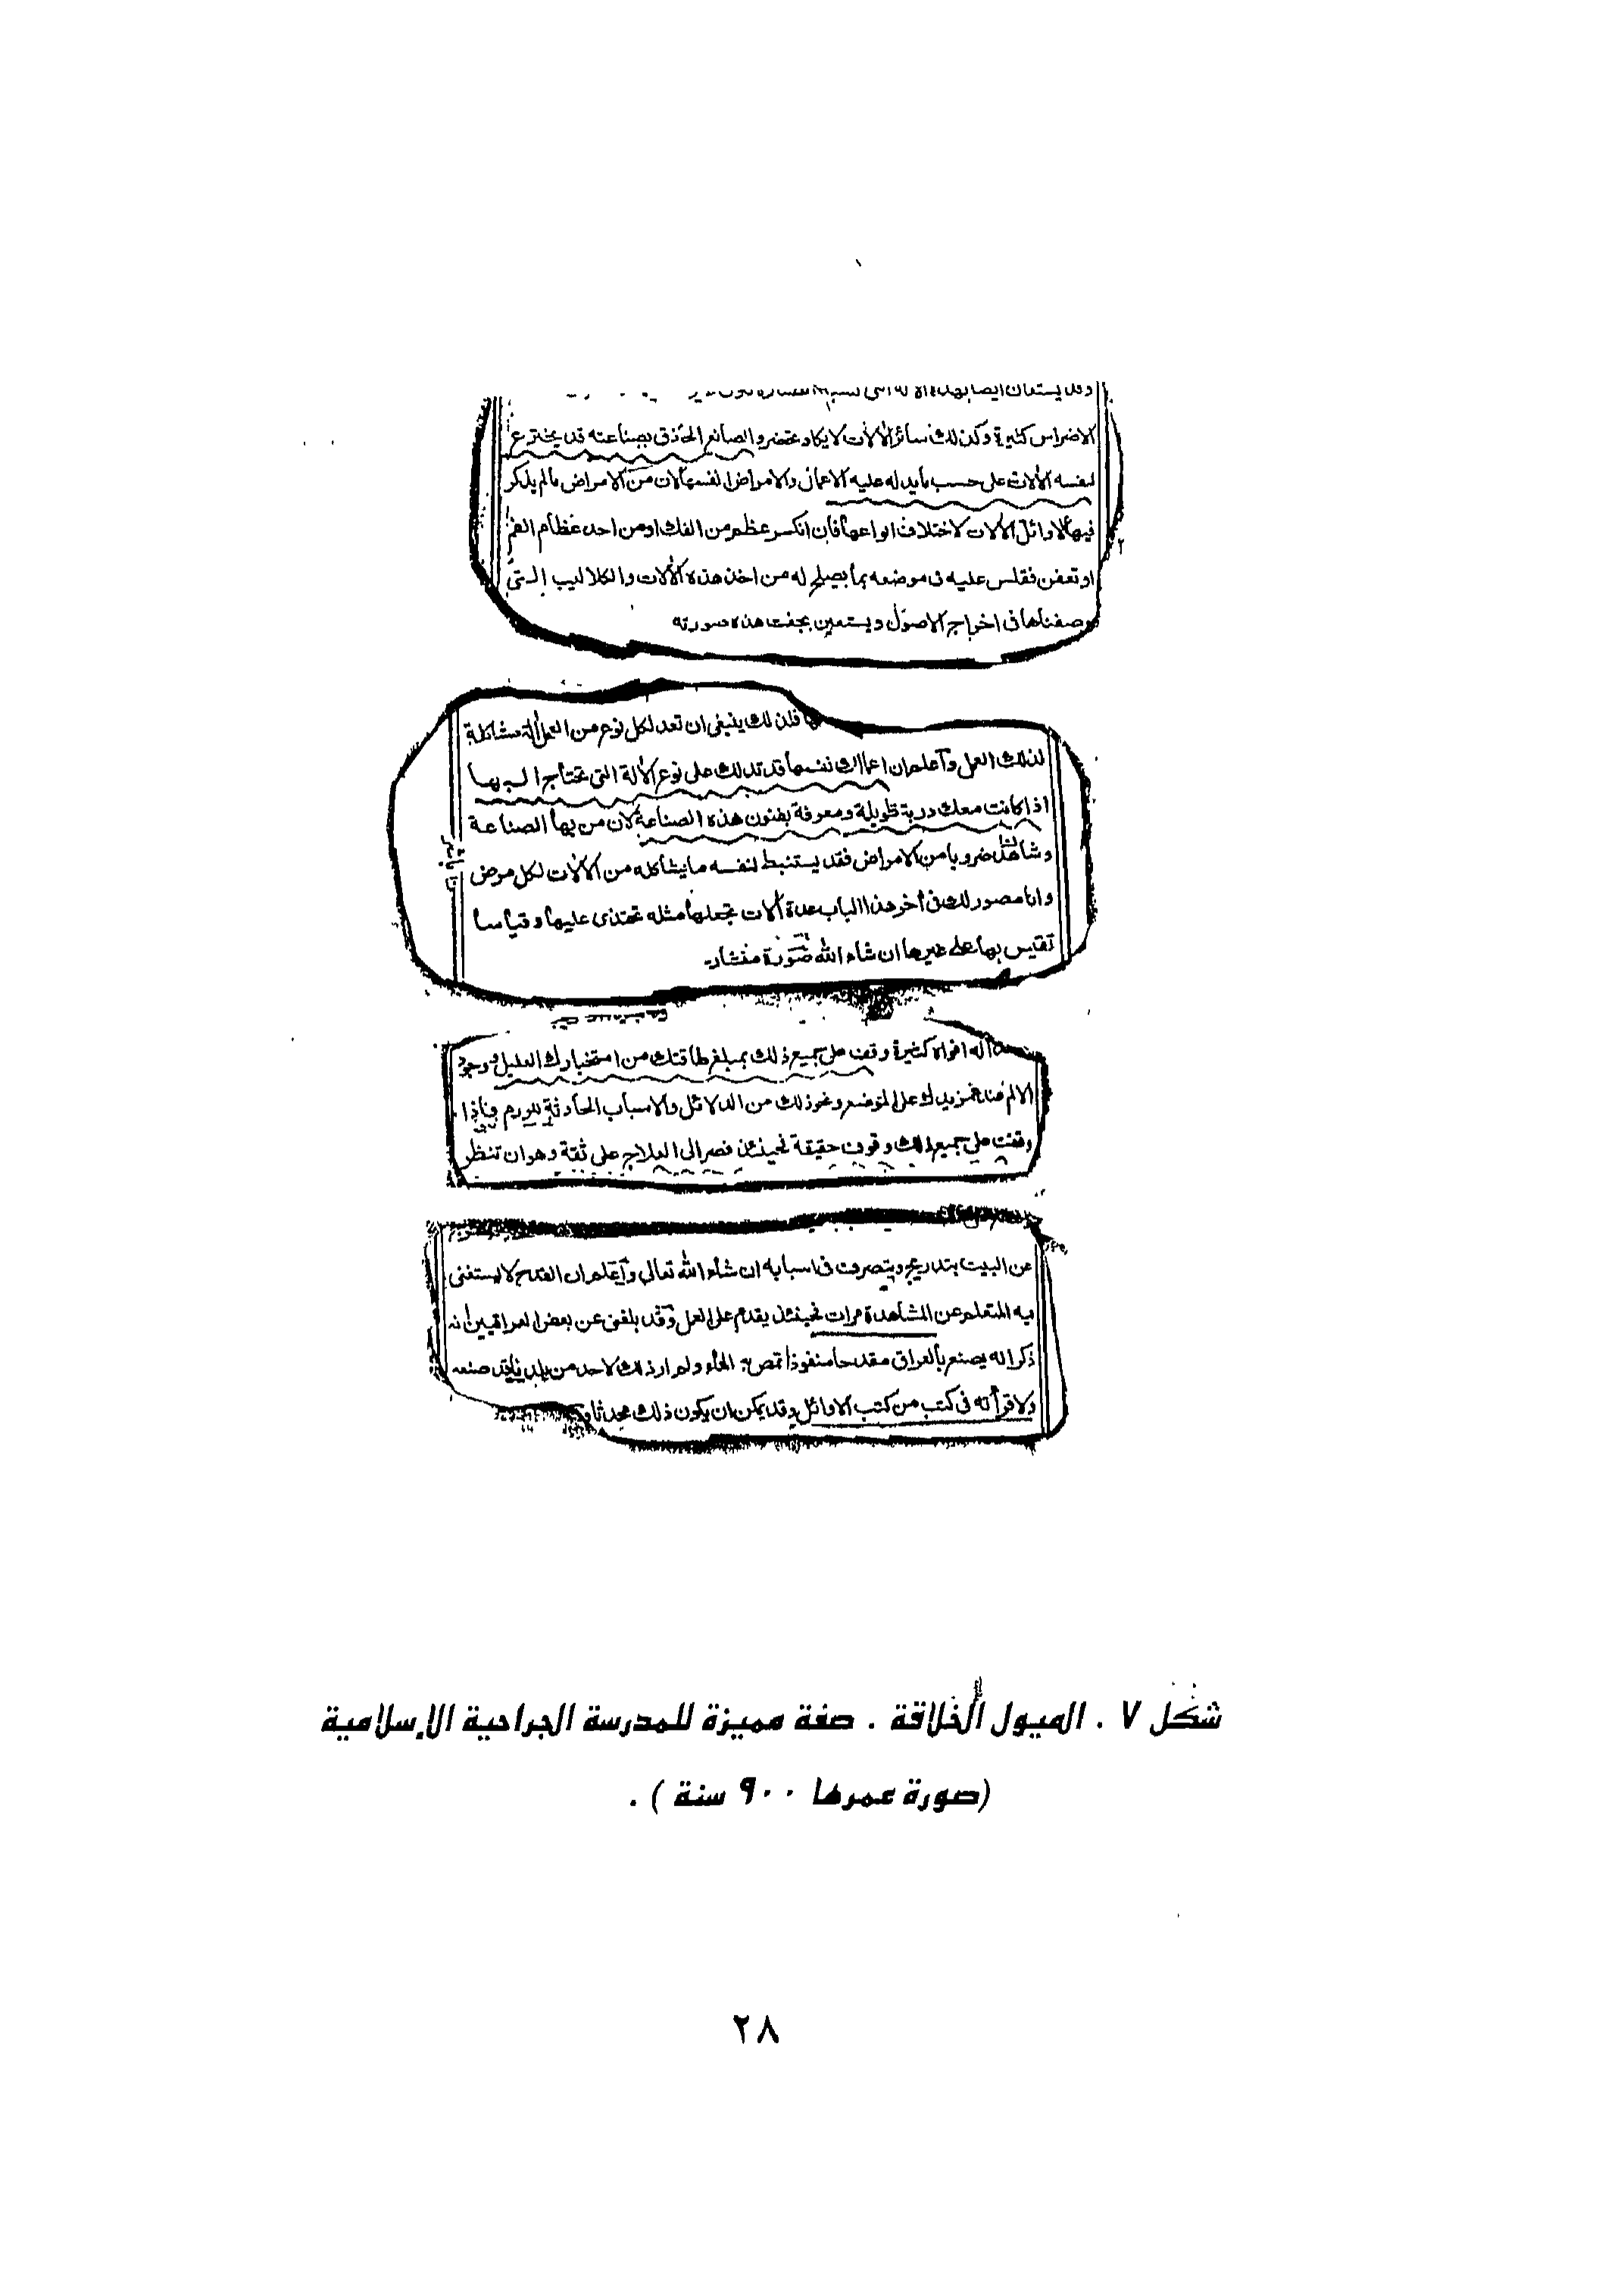 وقد يستعان ايضا بهذه الالة التى
الاضراس كثيرة وكذلك سائر الالات لا يكاد تحتضر والصانع الحاذق بصناعته قد يخترع
لنفسه الالات على حسب ما يدله عليه الاعمال والامراض انفسها لان من الامراض مالم يذكر
فيها الاوائل الالات لاختلاف انواعها فان انكسر عظم من الفك او من احد عظام الفم
او تعفن ففلس عليه فى موضعه بما يصلح له من اخذ هذه الالات والكلاليب التى
وصفناها فى اخراج الاصول ويستعين بجفت هذه صورته
فلذلك ينبغى ان تعد لكل نوع من العمل الة مشاكلة
لذلك العمل وآعلم ان اعمالك نفسها قد تدلك على نوع الالة التى تحتاج اليها
اذا كانت معك دربة طويلة ومعرفة بفنون هذه الصناعة لان من بها الصناعة
وشاهد ضروبا من الامراض فقد يستنبط لنفسه ما يشاكله من الالات لكل مرض
وانا مصور لك فى أخر هذا الباب عدة ألات تجعلها مثله تحتذى عليها وقياسا
تقيس بها على غيرها ان شاء الله صورة منشار
له افواه كثيرة وقف على جميع ذلك بمبلغ طاقتك من استخبارك العليل ووجود
الالم عند غمز يدك على الموضع ونحو ذلك من الدلائل والاسباب الحادثة للورم فاذا
وقفت على جميع ذلك وقوف حقيقة فحينئذ فصر الى العلاج على ثقة وهو ان تنظر
عن البيت بتدريج ويتصرف فى اسبابه ان شاء الله تعالى وآعلم ان القدح لا يستغنى
فيه المتعلم عن المشاهدة مرات فحينئذ يقدم على العمل وقد بلغنى عن بعض العراقيين أنه
ذكر انه يصنع بالعراق مقدحا منفوذا تمص به الماء ولم ار ذلك لاحد من بلدنا قد صنعه
ولا قرأته فى كتب من كتب الاوائل وقد يمكن ان يكون ذلك محدثا
شكل ٧ . الميول الخلاقة . صفة مميزة للمدرسة الجراحية الإسلامية
(صورة عمرها ٩٠٠ سنة ) .
٢٨